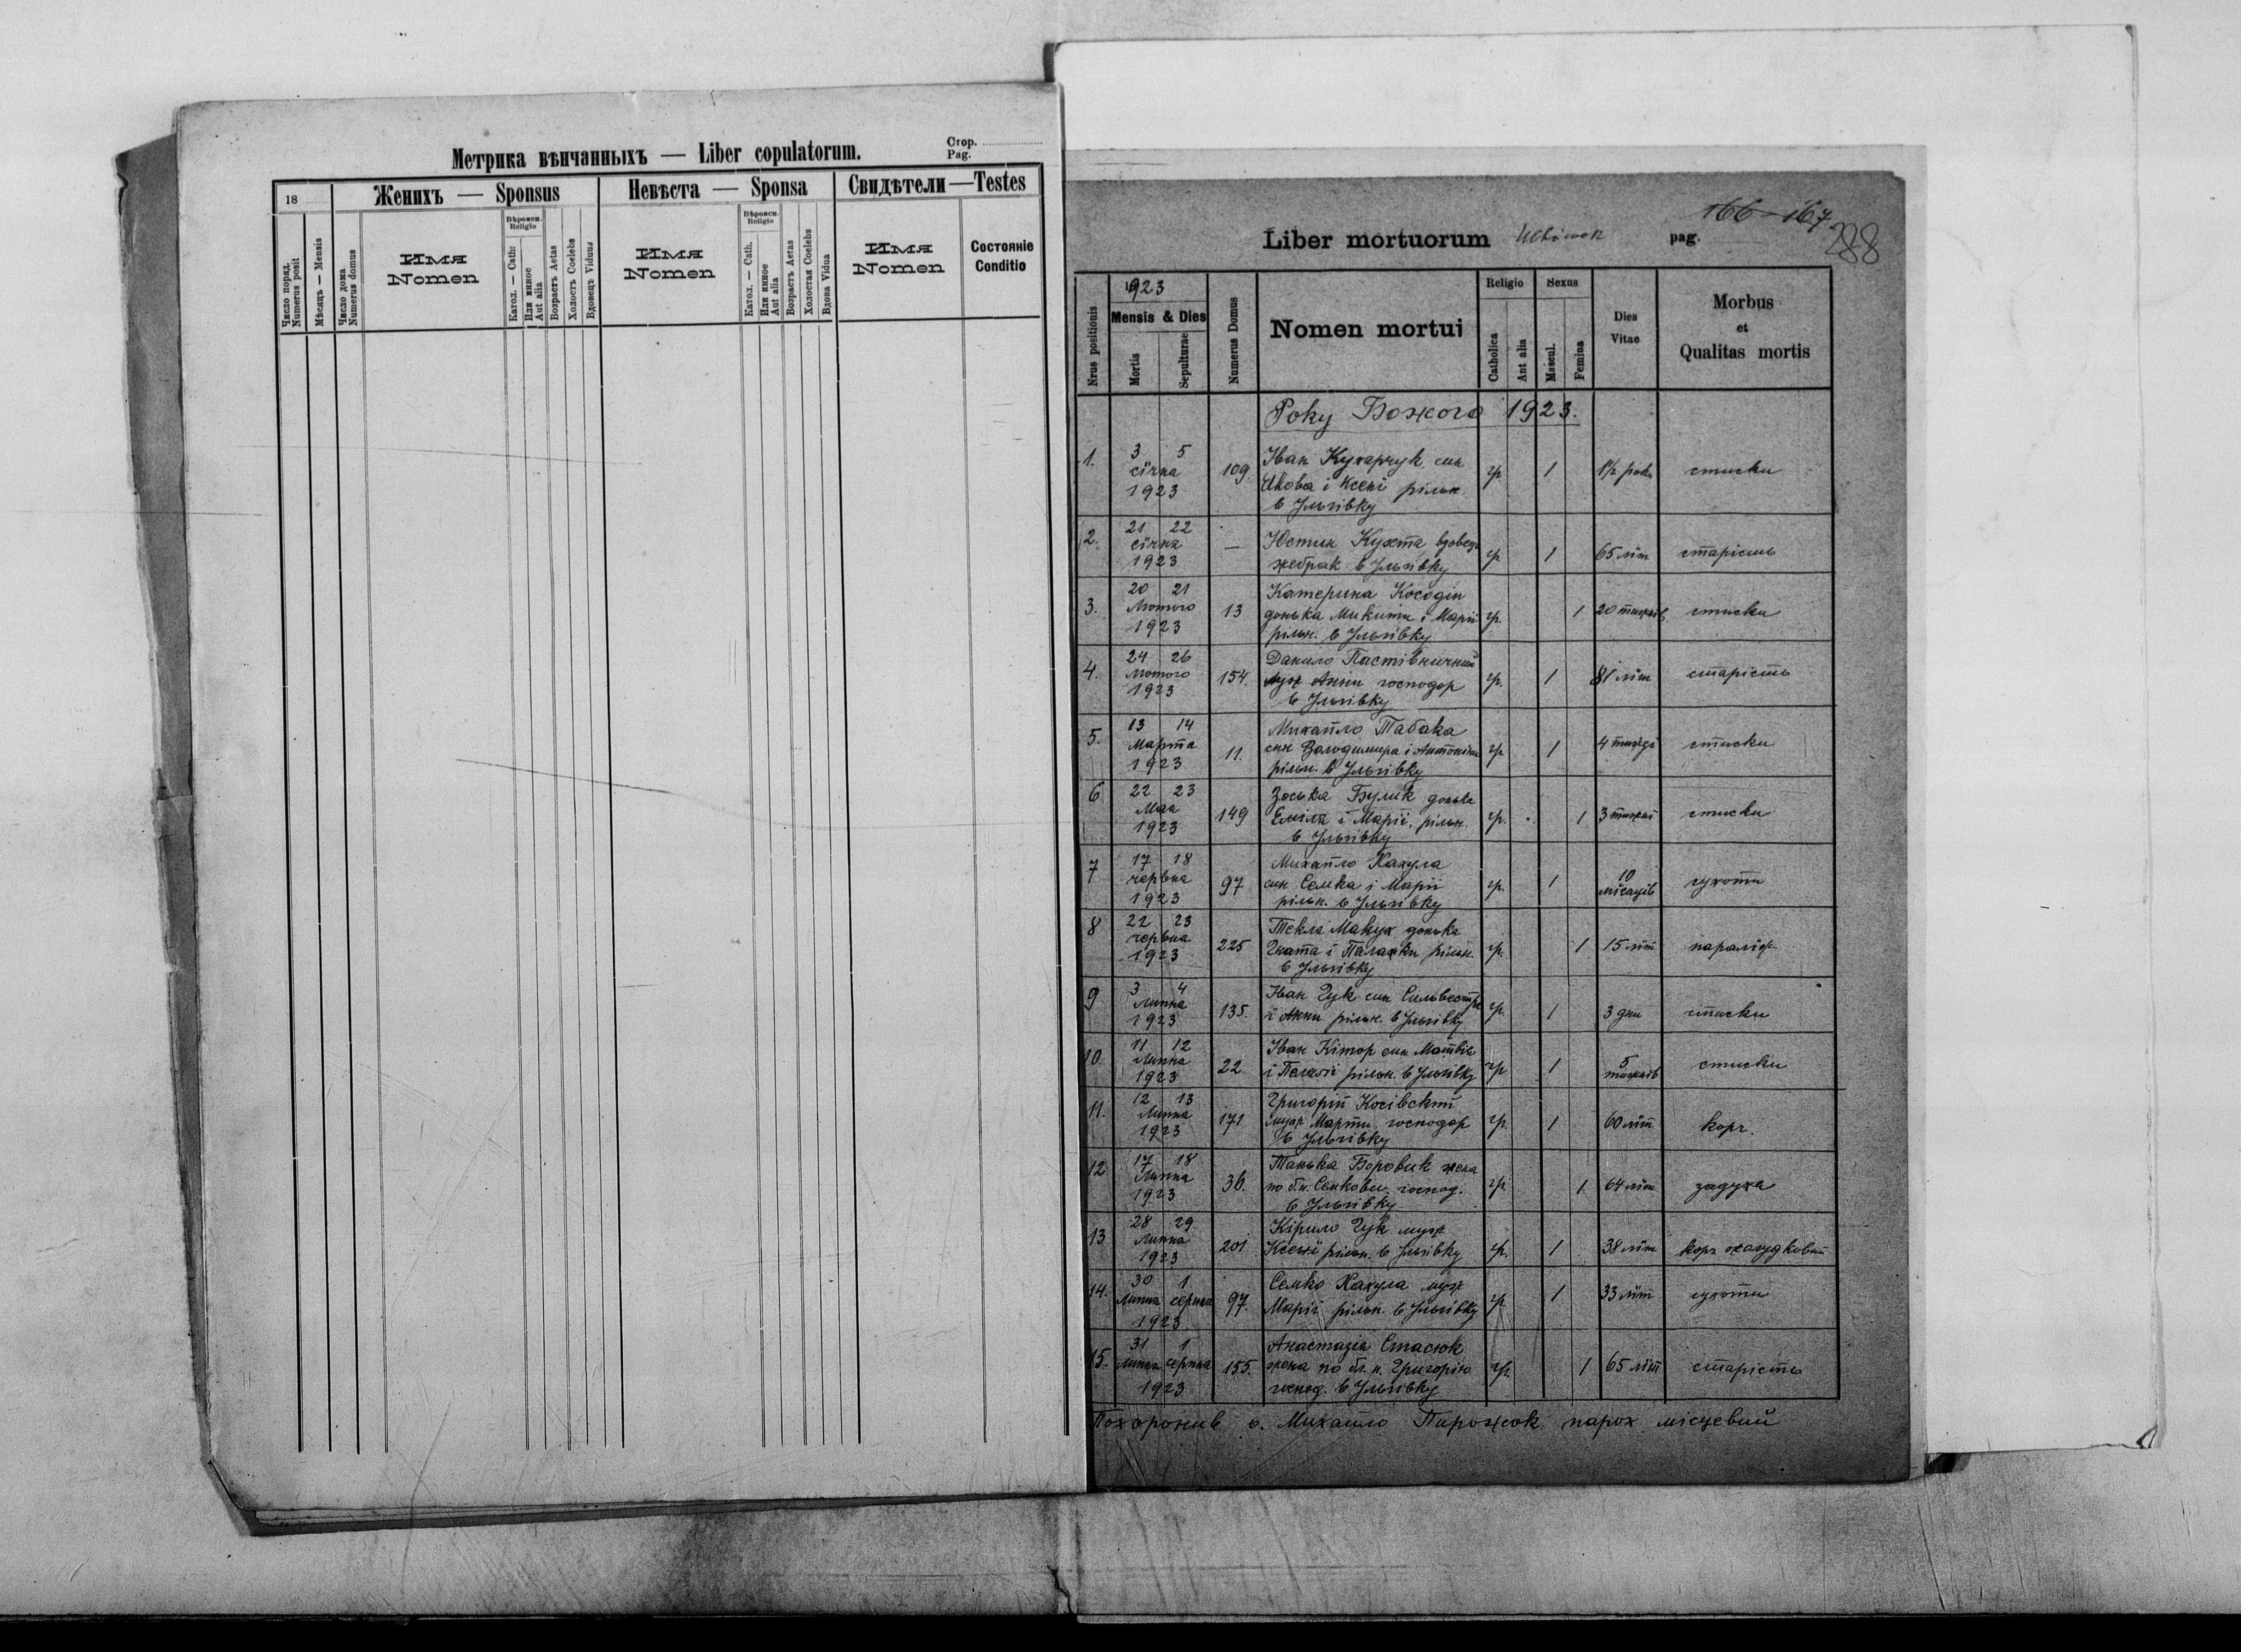 Метрика вѣнчанныхъ — Liber copulatorum.
Стор.
Pag.
18
Женихъ — Sponsus
Невѣста — Sponsa
Свидѣтели—Testes
Число поряд.
Numerus posit
Мѣсяцъ — Mensis
Число дома
Numerus domus
Имя
Nomen
Вѣроисп.
Religio
Катол. — Cath:
Или инное
Aut alia
Возрастъ Aetas
Холостъ Coelebs
Вдовецъ Viduus
Имя
Nomen
Вѣроисп.
Religio
Катол. — Cath.
Или инное
Aut alia
Возрастъ Aetas
Холостая Coelebs
Вдова Vidua
Имя
Nomen
Состояніе
Conditio
166-167
288
Liber mortuorum
pag.
Nrus positionis
1923
Mensis & Dies
Mortis
Sepulturae
Numerus Domus
Nomen mortui
Religio
Catholica
Aut alia
Sexus
Mascul.
Femina
Dies
Vitae
Morbus
et
Qualitas mortis
Року Божого 1923.
1. 3 5 січня 1923 109. Іван Кухарчук син
Якова і Ксені рільн.
в Ульгівку гр. 1 1½ рока стиски
2. 21 22 січня 1923 — Юстин Кухта вдовец
жебрак в Ульгівку гр 1 65 літ старість
3. 20 21 Лютого 1923 13 Катерина Косодін
донька Микити і Марії
рільн. в Ульгівку гр. 1 20 тижнів стиски
4. 24 26 Лютого 1923 154. Данило Пастівничний
муж Анни господар
в Ульгівку гр. 1 81 літ старість
5. 13 14 Марта 1923 11. Михайло Табака
син Володимира і Антоніни
рільн. в Ульгівку гр 1 4 стиски
6 22 23 Мая 1923 149 Зоська Булик донька
Еміля і Марії, рільн.
в Ульгівку гр. 1 3 тижні стиски
7 17 18 червня 1923 97 Михайло Кахула
син Семка і Марії
рільн. в Ульгівку гр. 1 10 місяців сухоти
8 22 23 червня 1923 225 Текла Макух донька
Гната і Палажки рільн.
в Ульгівку гр. 1 15 літ параліж
9 3 4 Липня 1923 135. Іван Гук син Сильвестра
і Анни рільн. в Ульгівку гр. 1 3 дни стиски
10 11 12 Липня 1923 22 Іван Кітор син Матвія
і Пелагії рільн. в Ульгівку гр 1 5 тижнів стиски
11. 12 13 Липня 1923 171 Григорій Косівский
муж Марти господар
в Ульгівку гр. 1 60 літ корч.
12 17 18 Липня 1923 36. Танька Боровик жена
по бл. п. Семкови господ.
в Ульгівку гр. 1 64 літ задуха
13 28 29 Липня 1923 201 Кірило Гук муж
Ксені рільн. в Ульгівку гр. 1 38 літ корч жолудковий
14. 30 1 Липня серпня 1923 97. Семко Кахула муж
Марії рільн. в Ульгівку гр 1 33 літ сухоти
15. 31 1 Липня серпня 1923 155. Анастазія Стасюк
жена по бл. п. Григорію
господ. в Ульгівку гр. 1 65 літ старість
Похоронив о. Михайло Пирожок парох місцевий